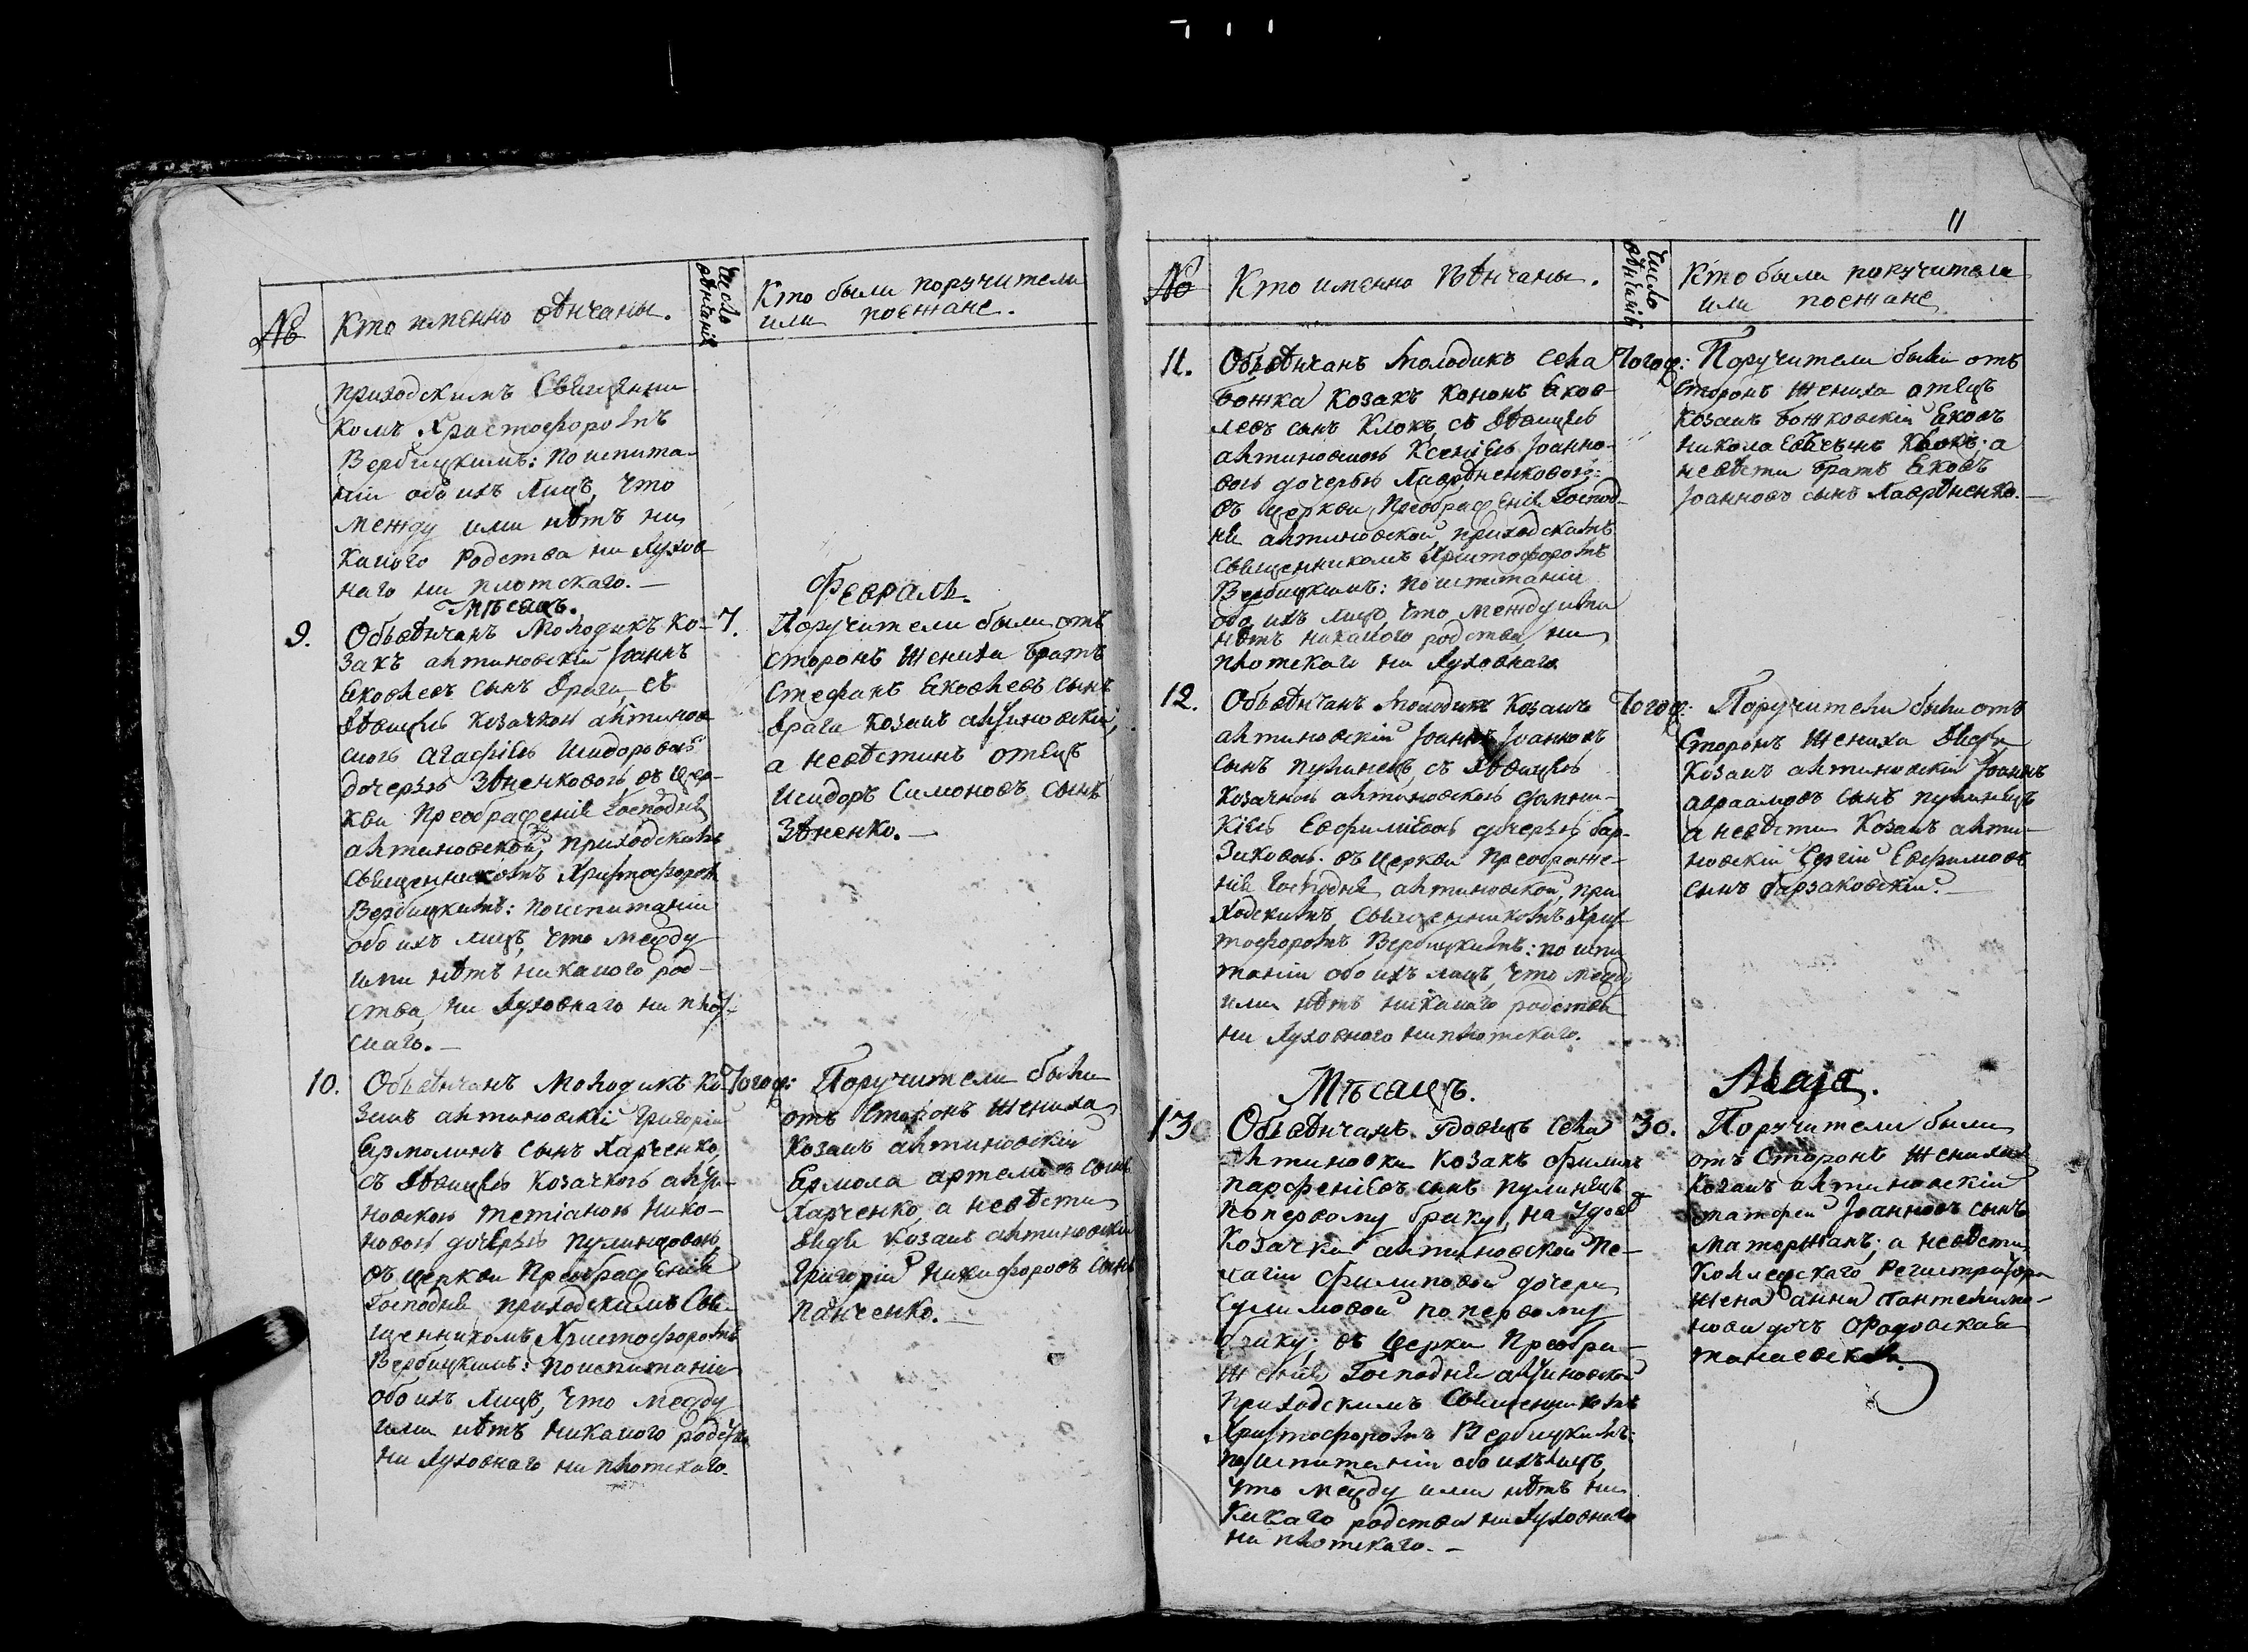 №
Кто именно вѣнчаны.
Число вѣнчанія
Кто были поручители
или поезжане.
приходскимъ Священни
комъ Христофоромъ
Вербицкимъ: по испита
ніи обо ихъ лицъ, что
между ими нѣтъ ни
какого родства ни духов
наго ни плотскаго.—
Мѣсяцъ.
Февраль.
9.
Объвѣнчанъ молодикъ ко-
закъ антиновскій Іоаннъ
Яковлевъ сынъ Драга, съ
дѣвицею козачкою антинов
скою Агафіею Исидоровою
дочерью Зѣненковою, въ цер-
кви Преображенія Господня
антиновской, приходскимъ
священникомъ Христофоромъ
Вербицкимъ: по испитаніи
обо ихъ лицъ, что между
ими нѣтъ никакого род-
ства, ни духовнаго ни плот-
скаго.—
7.
Поручители были отъ
сторонъ жениха братъ
Стефанъ Яковлевъ сынъ
Драга козакъ антиновскій,
а невѣстинъ отецъ
Исидоръ Симоновъ сынъ
Зѣненко.—
10.
Объвѣнчанъ молодикъ ко-
закъ антиновскій Григорій
Ермолинъ сынъ Харченко,
съ дѣвицею козачкою анти-
новскою Тетіаною Нико-
новою дочерью Пулинцовою
въ церкви Преображенія
Господня приходскимъ Свя
щенникомъ Христофоромъ
Вербицкимъ: по испитаніи
обо ихъ лицъ, что между
ими нѣтъ никакого родства
ни духовнаго ни плотскаго.
Тогож:
Поручители были
отъ сторонъ жениха
козакъ антиновскій
Ермола Артемовъ сынъ
Харченко, а невѣсти
дядя козакъ антиновскій
Григорій Никифоровъ сынъ
Панченко.—
11
№
Кто именно вѣнчаны.
Число вѣнчанія
Кто были поручители
или поезжане
11.
Объвѣнчанъ молодикъ села
Божка козакъ Кононъ Яков-
левъ сынъ Клокъ, съ дѣвицею
антиновскою Ксеніею Іоанно-
вою дочерью Лаврѣненковою:
въ церкви Преображенія Господ-
ня антиновской, приходскимъ
священникомъ Христофоромъ
Вербицкимъ: по испитаніи
обо ихъ лицъ, что между ими
нѣтъ никакого родства, ни
плотскаго ни духовнаго
Тогож:
Поручители были отъ
сторонъ жениха отецъ
козакъ божковскій Яковъ
Николаевъ сынъ Клокъ: а
невѣсти братъ Яковъ
Іоанновъ сынъ Лаврѣненко.—
12.
Объвѣнчанъ молодикъ козакъ
антиновскій Іоаннъ Іоанновъ
сынъ Пулинецъ, съ дѣвицею
козачкою антиновскою
Евфиміевою дочерью Бар-
заковою. въ церкви Преображе-
нія Господня антиновской, при
ходскимъ священникомъ Хрис
тофоромъ Вербицкимъ: по испи
таніи обо ихъ лицъ, что между
ими нѣтъ никакаго родства
ни духовного ни плотскаго.
Тогож:
Поручители были отъ
сторонъ жениха дядя
козакъ антиновскій Іоаннъ
Авраамовъ сынъ Пулинецъ
а невѣсти козакъ анти-
новскій Сергій Евфимовъ
сынъ Барзаковскій.—
Мѣсяцъ.
Маія.
13
Объвѣнчанъ удовецъ села
Антиновки козакъ Филипъ
Парфеніевъ сынъ Пулинецъ
по первому браку, на удовѣ
козачки антиновской Пе-
лагіи Филиповой дочери
Сулимовой по первому
браку; въ церкви Преобра-
женія Господня антиновской
приходскимъ священникомъ
Христофоромъ Вербицкимъ:
по испитаніи обо ихъ лицъ,
что между ими нѣтъ ни
какаго родства ни духовнаго
ни плотскаго.—
30.
Поручители были
отъ сторонъ жениха
козакъ антиновскій
Матфей Іоанновъ сынъ
Маторжанъ; а невѣсти
Коллежскаго Регистратора
жена Анна Пантелимо-
нова дочь